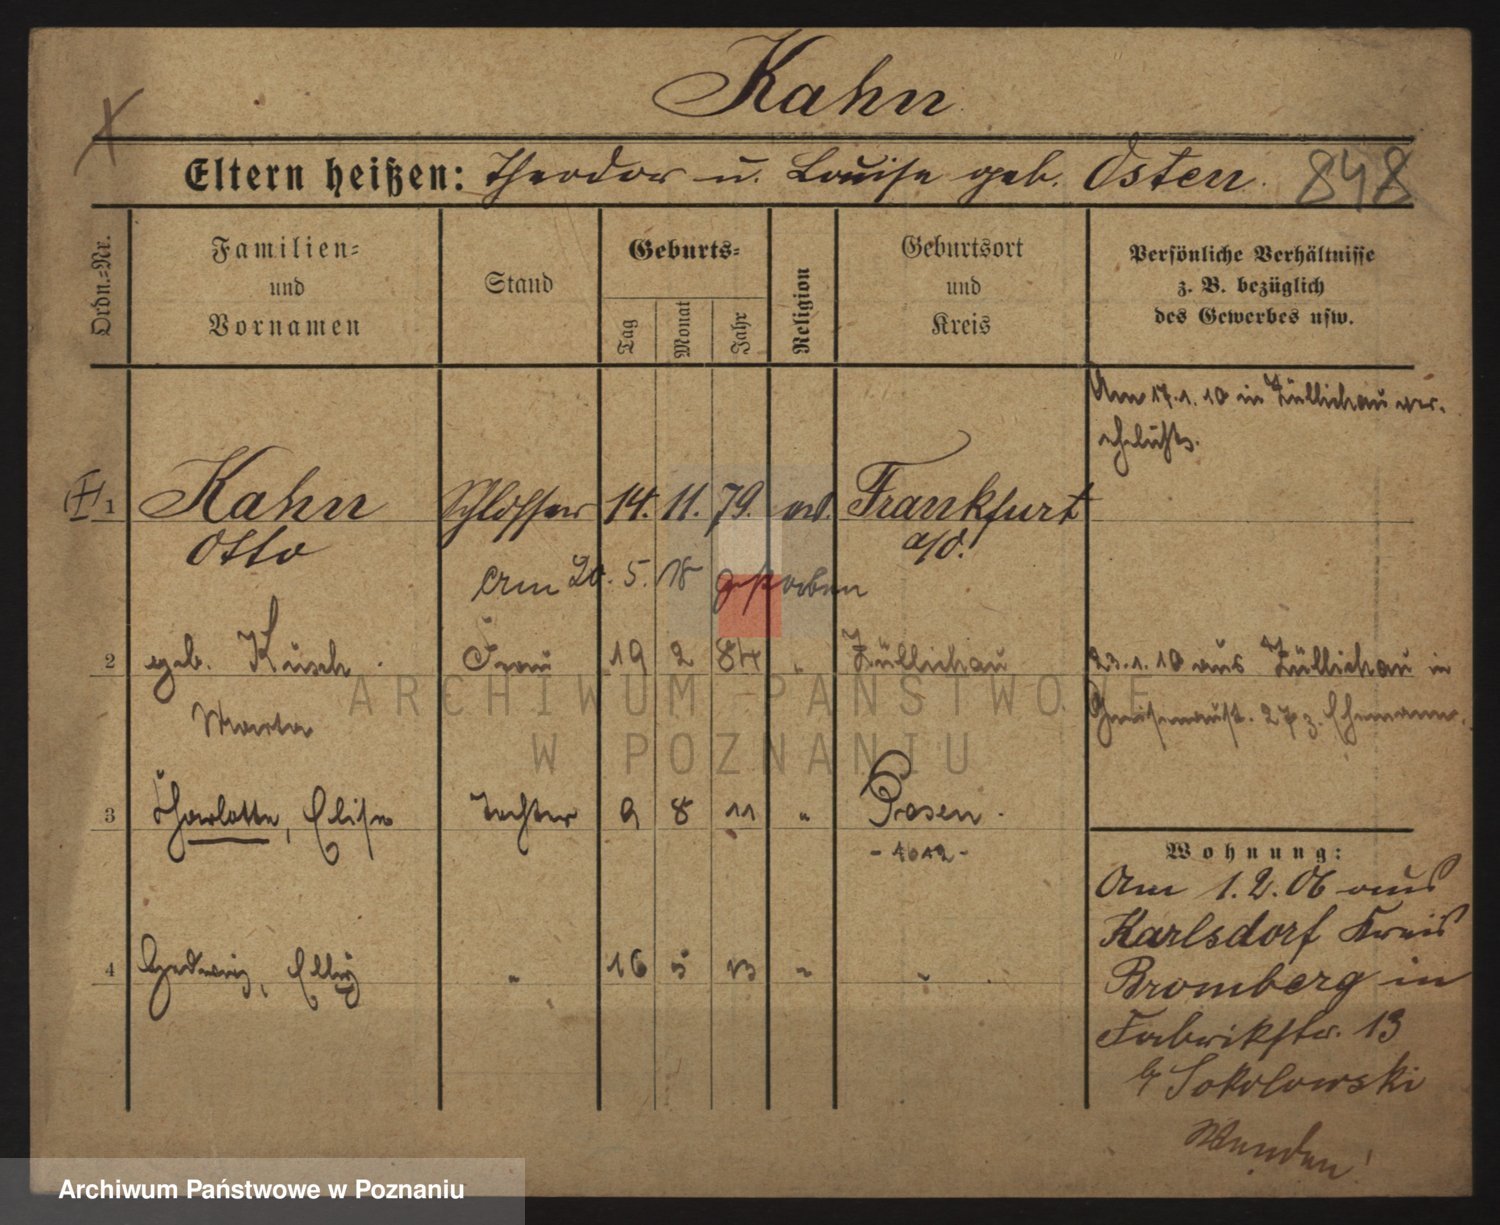 Kahn
Eltern heißen: Theodor u. Louise geb. Osten.
848
Ordn.-Nr.
Familien- und Vornamen
Stand
Geburts-
Tag
Monat
Jahr
Religion
Geburtsort und Kreis
Persönliche Verhältnisse
z. B. bezüglich
des Gewerbes usw.
Am 17.1.10 in Züllichau ver-
ehelicht.
1 Kahn Schlosser 14. 11. 79. ev. Frankfurt
Otto a/O.
Am 20. 5. 18 gestorben
2 geb. Kusch Frau 19 2 84 " Züllichau
23.1.10 aus Züllichau in
Marta
Gneisenaustr. 27 z. Ehemann.
3 Charlotte, Elise Tochter 9 8 11 " Posen.
4 Hedwig, Elly " 16 5 13 " "
Wohnung:
Am 1.2.06 aus
Karlsdorf Kreis
Bromberg in
Fabrikstr. 13
b/ Sokolowski
Wenden!
ARCHIWUM PAŃSTWOWE
W POZNANIU
Archiwum Państwowe w Poznaniu